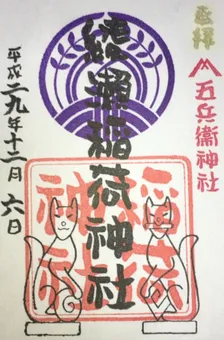 奉拝
五兵衛神社
綾瀬稲荷神社
平成二九年十二月六日